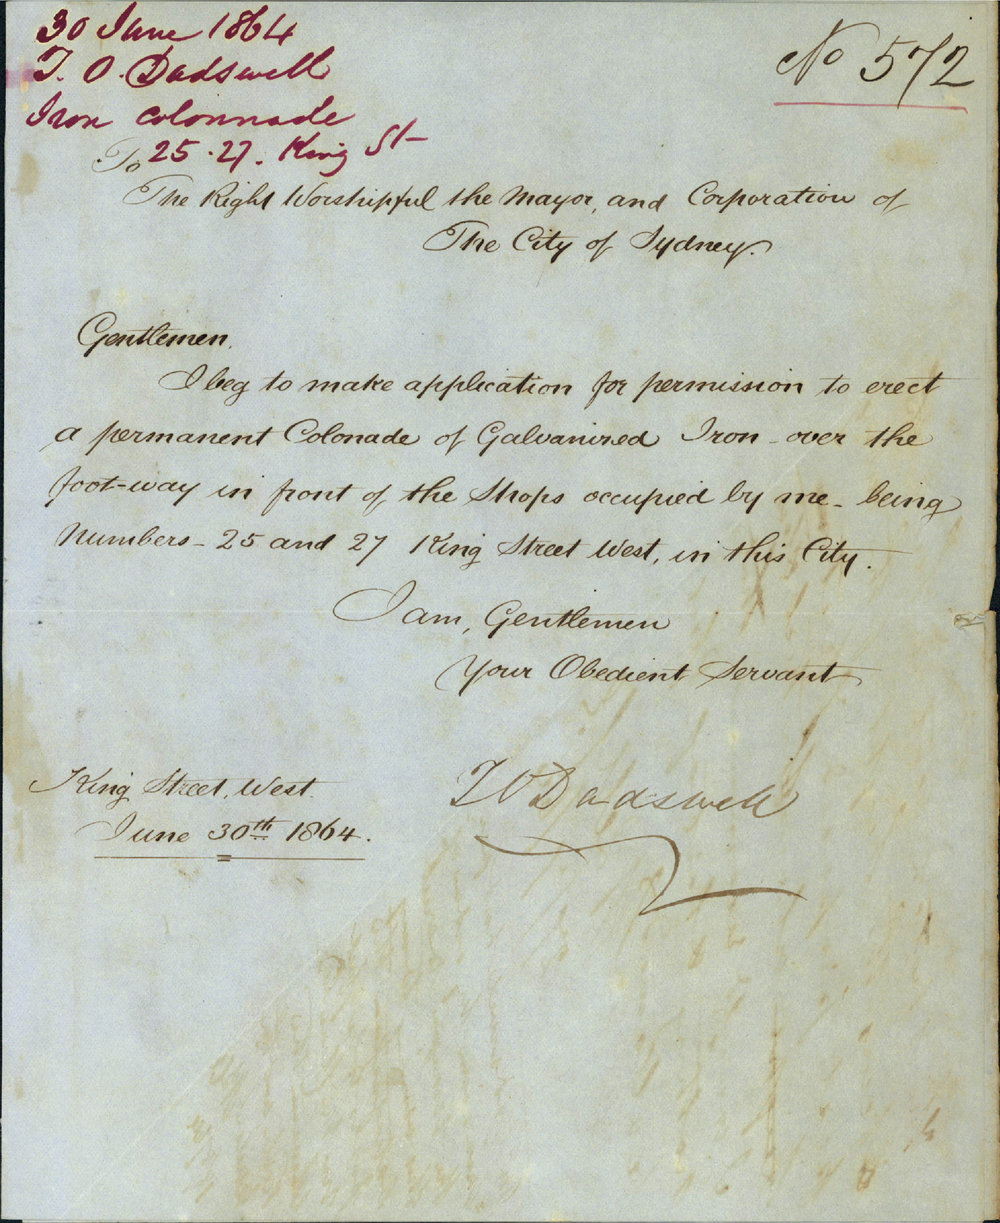 30 June 1864
T. O. Dadswell
Iron colonnade
25-27. King St
No 572
To
The Right Worshipful the Mayor, and Corporation of
The City of Sydney.
Gentlemen,
I beg to make application for permission to erect
a permanent Colonade of Galvanized Iron - over the
foot-way in front of the Shops occupied by me - being
Numbers - 25 and 27 King Street West, in this City.
I am, Gentlemen
Your Obedient Servant
T O Dadswell
King Street, West.
June 30th 1864.